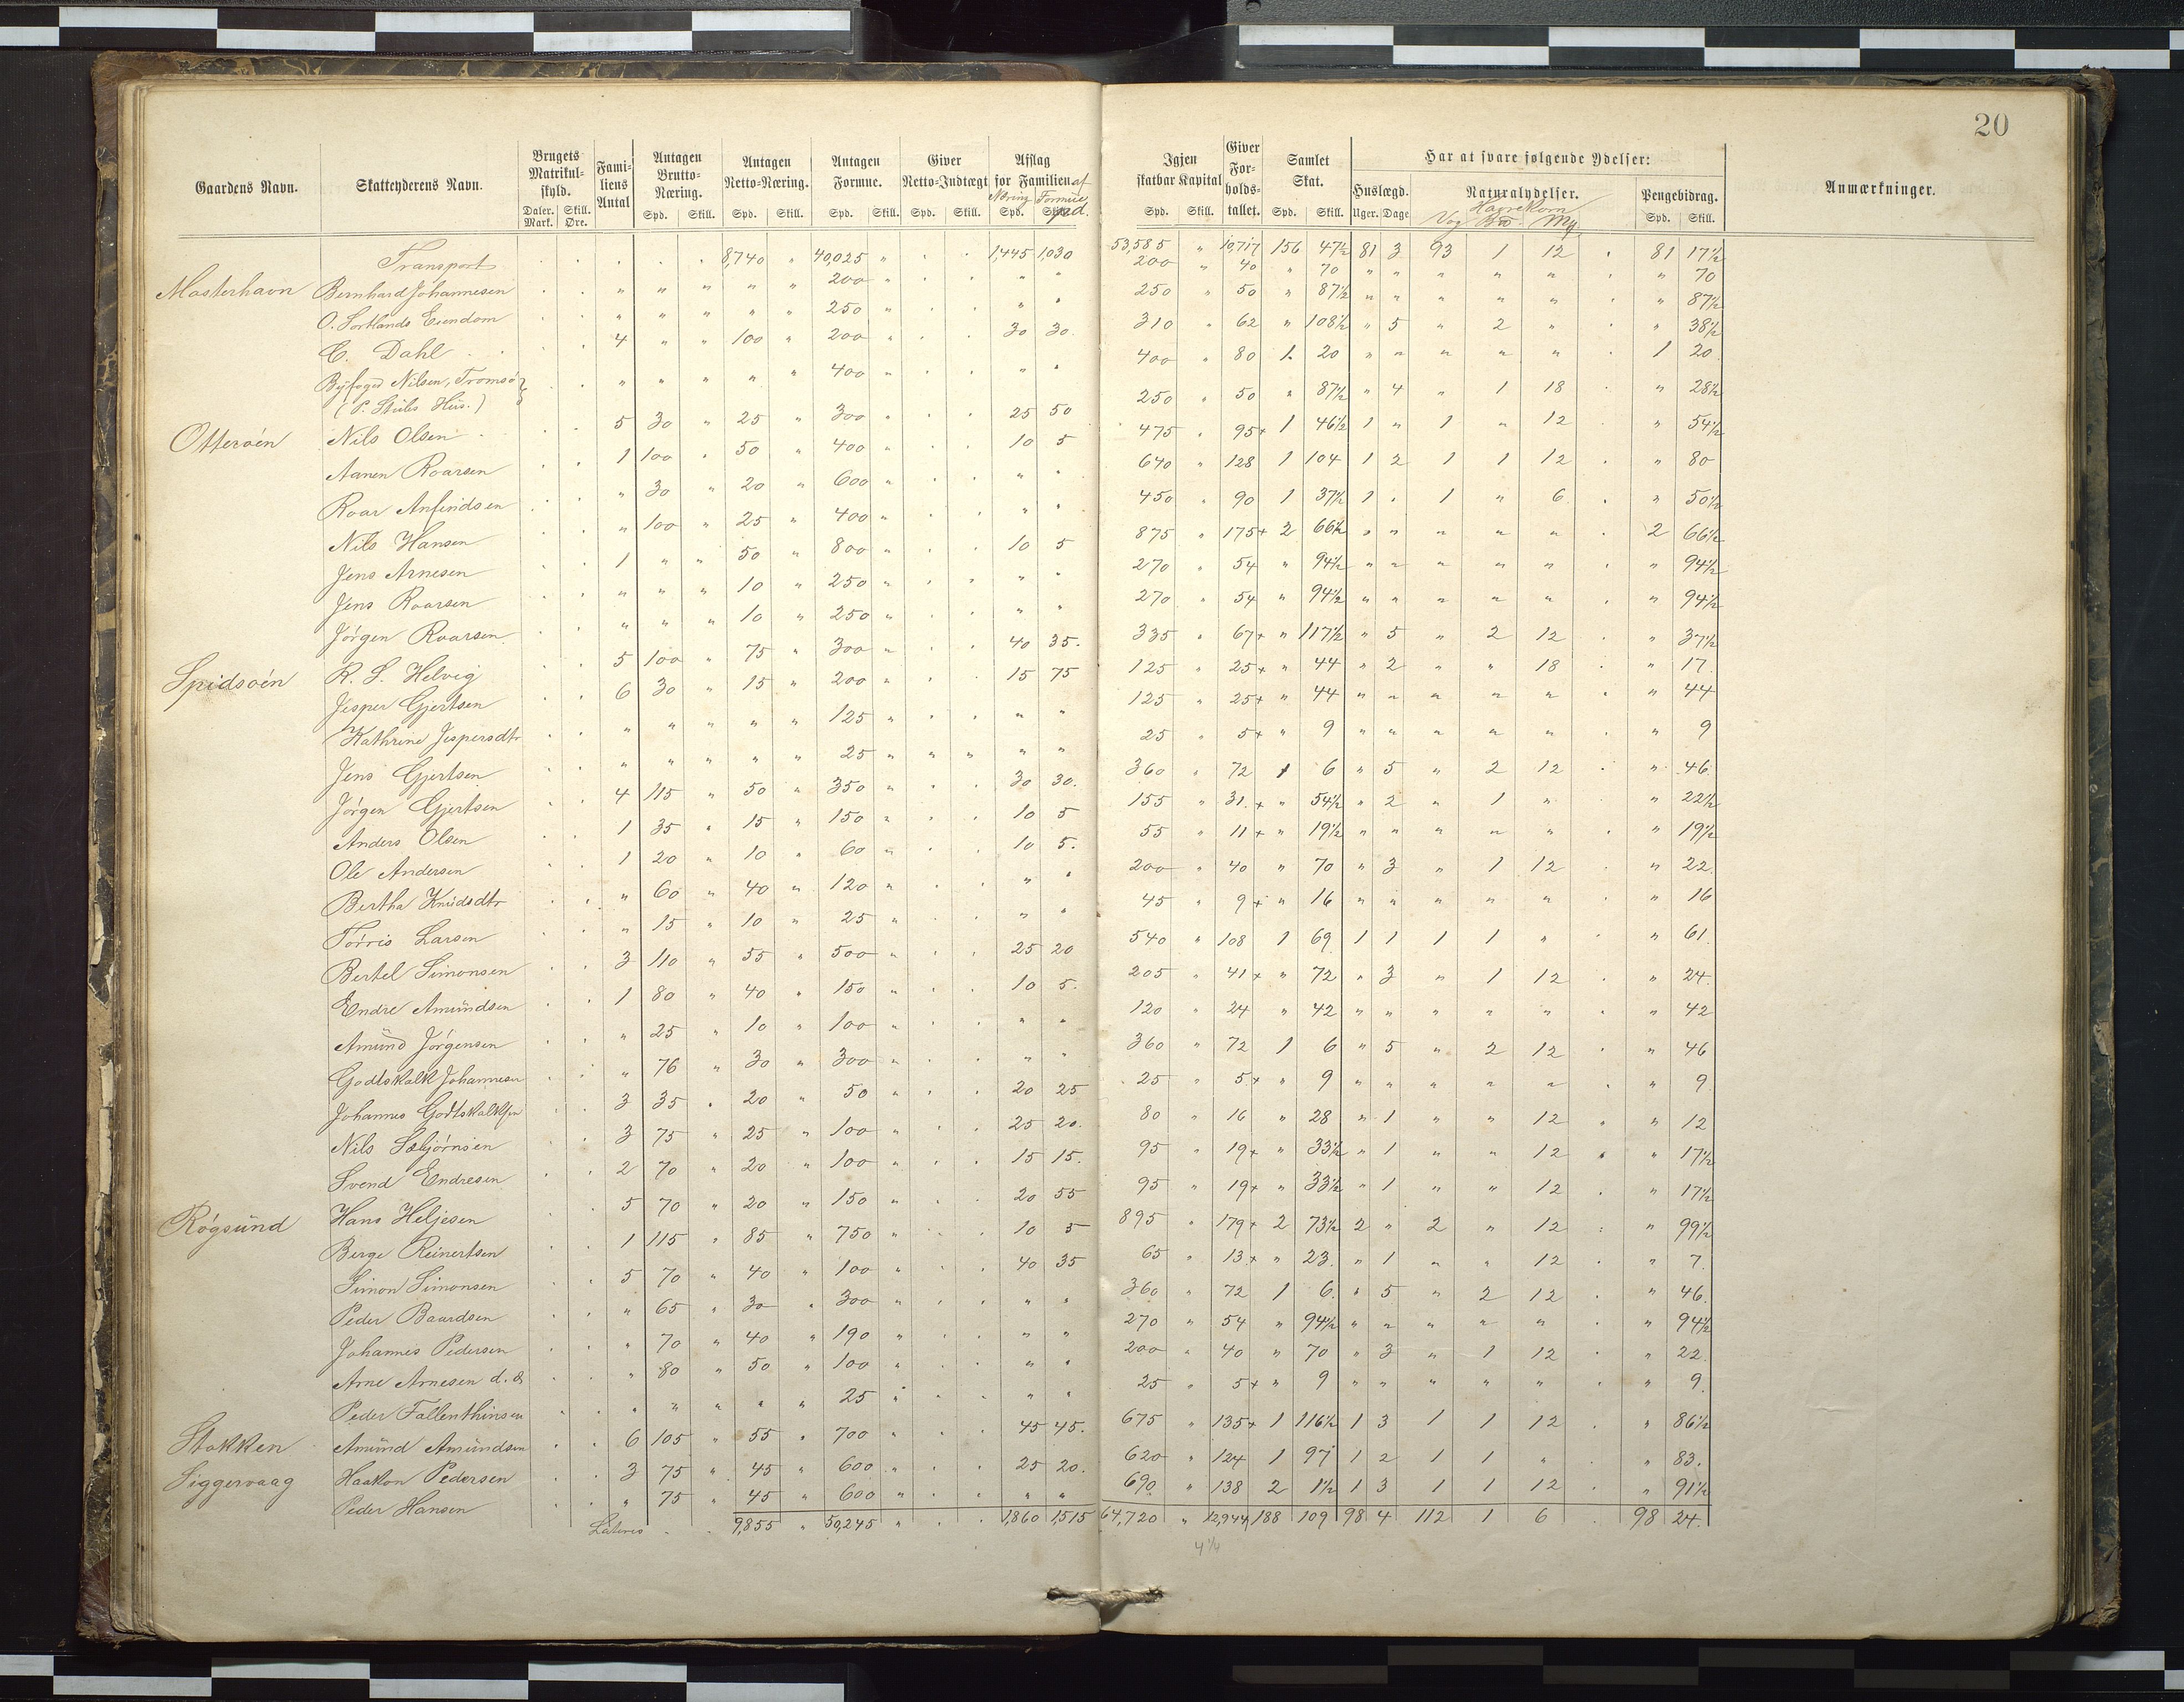 20
Gaardens Navn. Skatteyderens Navn. Brugets Matrikulskyld. Daler. Mark. Skill. Øre. Familiens Antal Antagen Brutto-Næring. Spd. Skill. Antagen Netto-Næring. Spd. Skill. Antagen Formue. Spd. Skill. Giver Netto-Indtægt Spd. Skill. Afslag for Familien af Næring Formue Spd. Spd. Igjen skatbar Kapital Spd. Skill. Giver Forholdstallet. Samlet Skat. Spd. Skill. Har at svare følgende Ydelser: Huslægd. Uger. Dage Naturalydelser. Havrekorn Vog Bd. Mk. Pengebidrag. Spd. Skill. Anmærkninger.
Transport 8,740 " 40,025 " 1,445 1,030 53,585 " 10,717 156 47½ 81 3 93 1 12 81 17½
Mosterhavn Bernhard Johannesen " " " " " 200 " " " 200 " 40 " 70 " " " " " " 70
O. Sortlands Eiendom " " " " " 250 " " " 250 " 50 " 87½ " " " " " " 87½
C. Dahl 4 " " 100 " 200 " 30 30 310 " 62 " 108½ " 5 " 2 " " 38½
Byfoged Nilsen, Tromsø (P. Stubs Hus.) " " " " " 400 " " " 400 " 80 1 20 " " " " " 1 20
Otterøen Nils Olsen 5 30 " 25 " 300 " 25 50 250 " 50 " 87½ " 4 " 1 18 " 28½
Aanen Roarsen 1 100 " 50 " 400 " 10 5 475 " 95+ 1 46½ 1 " 1 " 12 " 54½
Roar Anfindsen " 30 " 20 " 600 " " " 640 " 128 1 104 1 2 1 1 12 " 80
Nils Hansen " 100 " 25 " 400 " " " 450 " 90 1 37½ 1 " 1 " 6 " 50½
Jens Arnesen 1 " " 50 " 800 " 10 5 875 " 175+ 2 66½ " " " " " 2 66½
Jens Roarsen " " " 10 " 250 " " " 270 " 54 " 94½ " " " " " " 94½
Jörgen Roarsen " " " 10 " 250 " " " 270 " 54 " 94½ " " " " " " 94½
Spidsøen R. S. Helvig 5 100 " 75 " 300 " 40 35. 335 " 67+ " 117½ " 5 " 2 12 " 37½
Jesper Gjertsen 6 30 " 15 " 200 " 15 75 125 " 25+ " 44 " 2 " " 18 " 17
Kathrine Jespersdtr " " " " " 125 " " " 125 " 25+ " 44 " " " " " " 44
Jens Gjertsen " " " " " 25 " " " " " 25 " 5+ " 9 " " " " " " 9
Jörgen Gjertsen 4 115 " 50 " 350 " 30 30. 360 " 72 1 6 " 5 " 2 12 " 46
Anders Olsen 1 35 " 15 " 150 " 10 5 155 " 31.+ " 54½ " 2 " 1 " " 22½
Ole Andersen 1 20 " 10 " 60 " 10 5. 55 " 11+ " 19½ " " " " " " 19½
Bertha Knudsdtr " 60 " 40 " 120 " " " 200 " 40 " 70 " 3 " 1 12 " 22
Torris Larsen " 15 " 10 " 25 " " " 45 " 9+ " 16 " " " " " " 16
Bertel Simonsen 3 110 " 55 " 500 " 25 20 540 " 108 1 69 1 1 1 1 " " 61
Endre Amundsen 1 80 " 40 " 150 " 10 5. 205 " 41+ " 72 " 3 " 1 12 " 24.
Amund Jörgensen " 25 " 10 " 100 " " " 120 " 24 " 42 " " " " " " 42
Godtskalk Johannesen " 76 " 30 " 300 " " " 360 " 72 1 6 " 5 " 2 12 " 46
Johannes Godtskalksen 3 35 " 20 " 50 " 20 25 25 " 5+ " 9 " " " " " " 9
Nils Sæbjörnsen 3 75 " 25 " 100 " 25 20. 80 " 16 " 28 " 1 " " 12 " 12
Svend Endresen 2 70 " 20 " 100 " 15 15. 95 " 19+ " 33½ " 1 " " 12 " 17½
Røgsund Hans Heljesen 5 70 " 20 " 150 " 20 55 95 " 19+ " 33½ " 1 " " 12 " 17½
Berge Reinertsen 1 115 " 85 " 750 " 10 5 895 " 179+ 2 73½ 2 " 2 " 12 " 99½
Simon Simonsen 5 70 " 40 " 100 " 40 35 65 " 13+ " 23. " 1 " " 12 " 7.
Peder Baardsen " 65 " 30 " 300 " " " 360 " 72 1 6. " 5 " 2 12 " 46.
Johannes Pedersen " 70 " 40 " 190 " " " 270 " 54 " 94½ " " " " " " 94½
Arne Arnesen d. æ " 80 " 50 " 100 " " " 200 " 40 " 70 " 3 " 1 12 " 22.
Peder Fallenthinsen " " " " " 25 " " " 25 " 5+ " 9 " " " " " " 9.
Stokken Amund Amundsen 6 105 " 55 " 700 " 45 45. 675 " 135+ 1 116½ 1 3 1 1 12 " 86½
Siggervaag Haakon Pedersen 3 75 " 45 " 600 " 25 20. 620 " 124 1 97 1 2 1 1 " " 83.
Peder Hansen " 75 " 45 " 600 " " " 690 " 138 2 1½ 1 3 1 1 12 " 91½
Lateris 9,855 " 50,245 " 1,860 1,515 64,720 " 12,944 188 109 98 4 112 1 6 98 24.
4¼